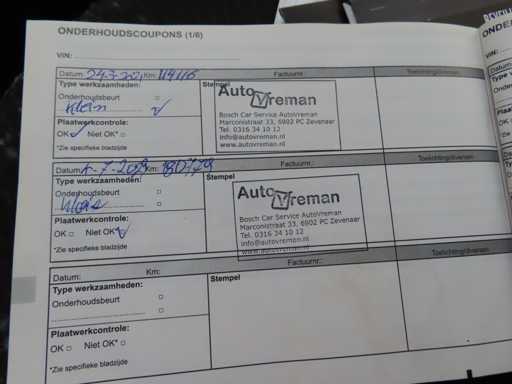 ONDERHOUDSCOUPONS (1/6)
VIN:
Datum: Km: Factuurnr.: Toelichting/diversen
Type werkzaamheden: Stempel
Onderhoudsbeurt
Klein
Plaatwerkcontrole:
OK Niet OK*
*Zie specifieke bladzijde
Auto Vreman
Bosch Car Service AutoVreman
Marconistraat 33, 6902 PC Zevenaar
Tel. 0316 34 10 12
info@autovreman.nl
www.autovreman.nl
Datum: Km: Factuurnr.: Toelichting/diversen
Type werkzaamheden: Stempel
Onderhoudsbeurt
Plaatwerkcontrole:
OK Niet OK*
*Zie specifieke bladzijde
Auto Vreman
Bosch Car Service AutoVreman
Marconistraat 33, 6902 PC Zevenaar
Tel. 0316 34 10 12
info@autovreman.nl
www.autovreman.nl
Datum: Km: Factuurnr.: Toelichting/diversen
Type werkzaamheden: Stempel
Onderhoudsbeurt
Plaatwerkcontrole:
OK Niet OK*
*Zie specifieke bladzijde